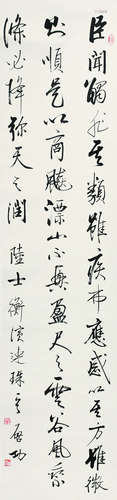 臣聞觸非其類雖疾弗應感以其方雖微
則順是以商飈漂山不興盈尺之雲谷風乘
條必降彌天之潤 陸士衡演連珠 啟功